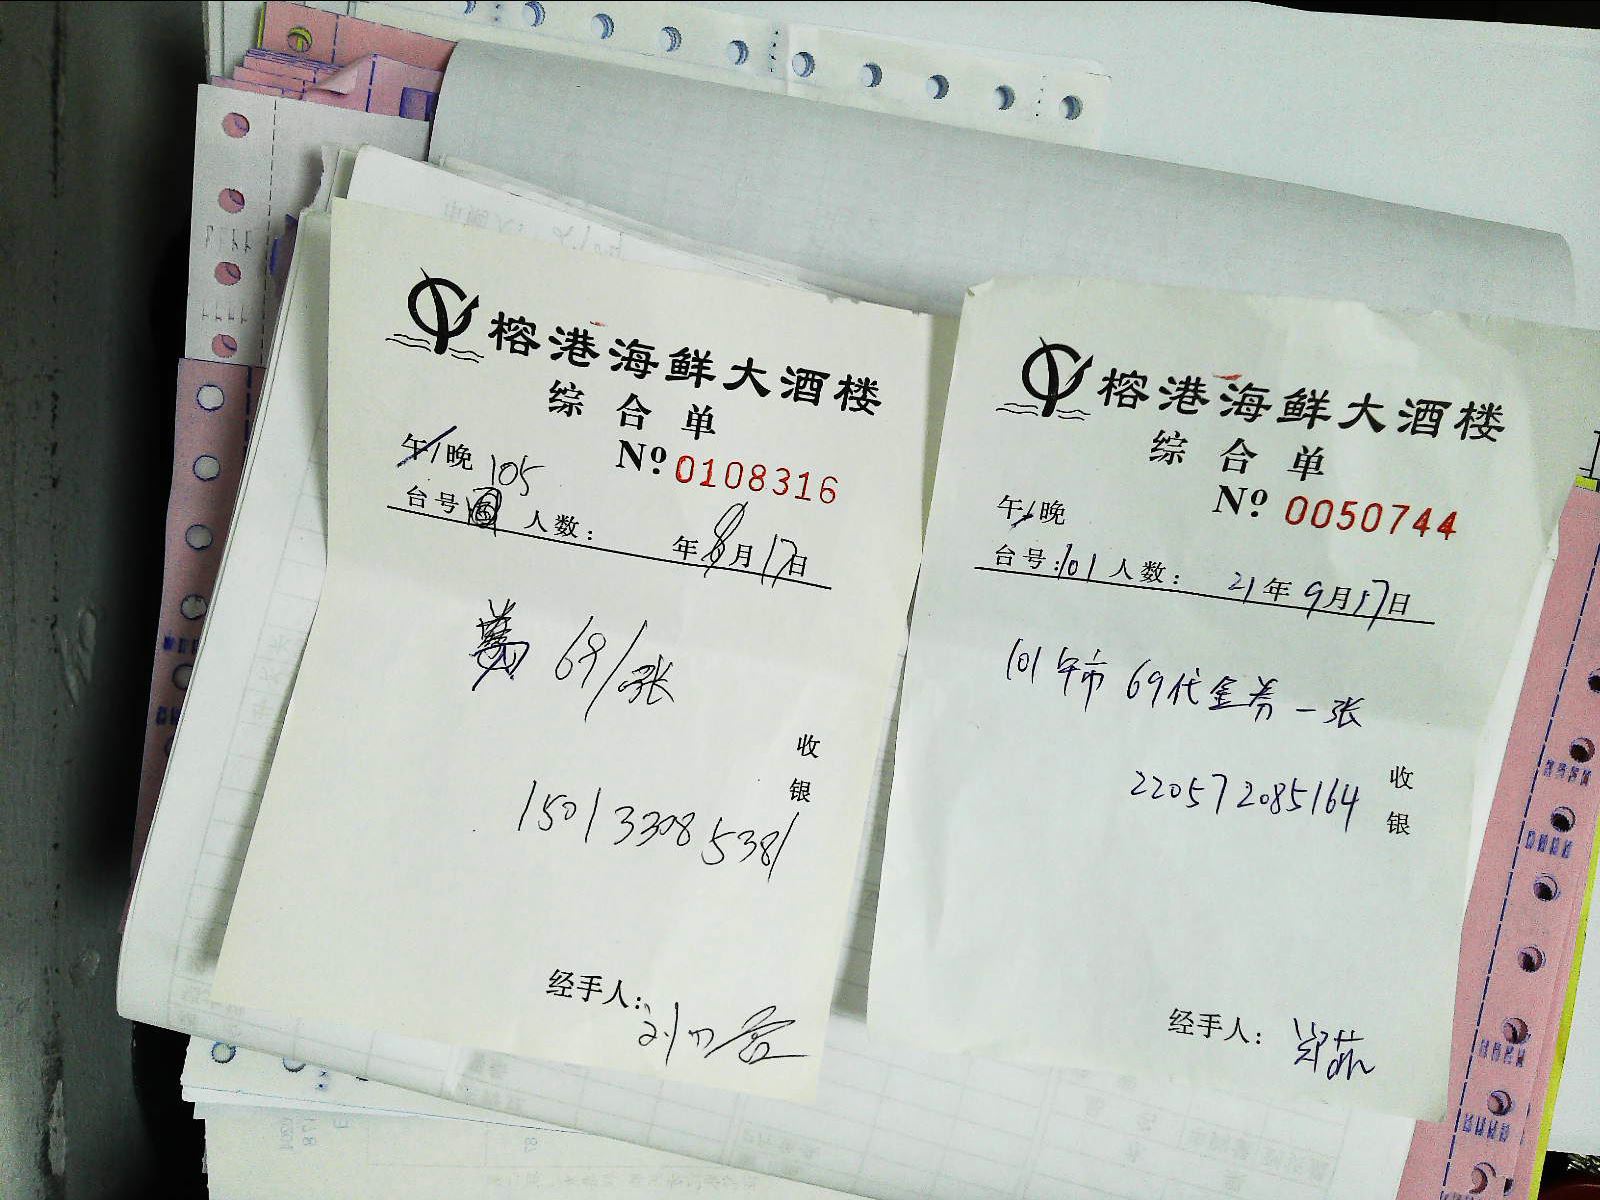 榕港海鲜大酒楼
综合单
午/晚 105 Nº 0108316
台号 人数： 年8月17日
69/张
收
银
15013308538/
经手人：
榕港海鲜大酒楼
综合单
午/晚 Nº 0050744
台号：101 人数： 21年9月17日
101午市 69代金券一张
收
银
220572085164
经手人：郑茹